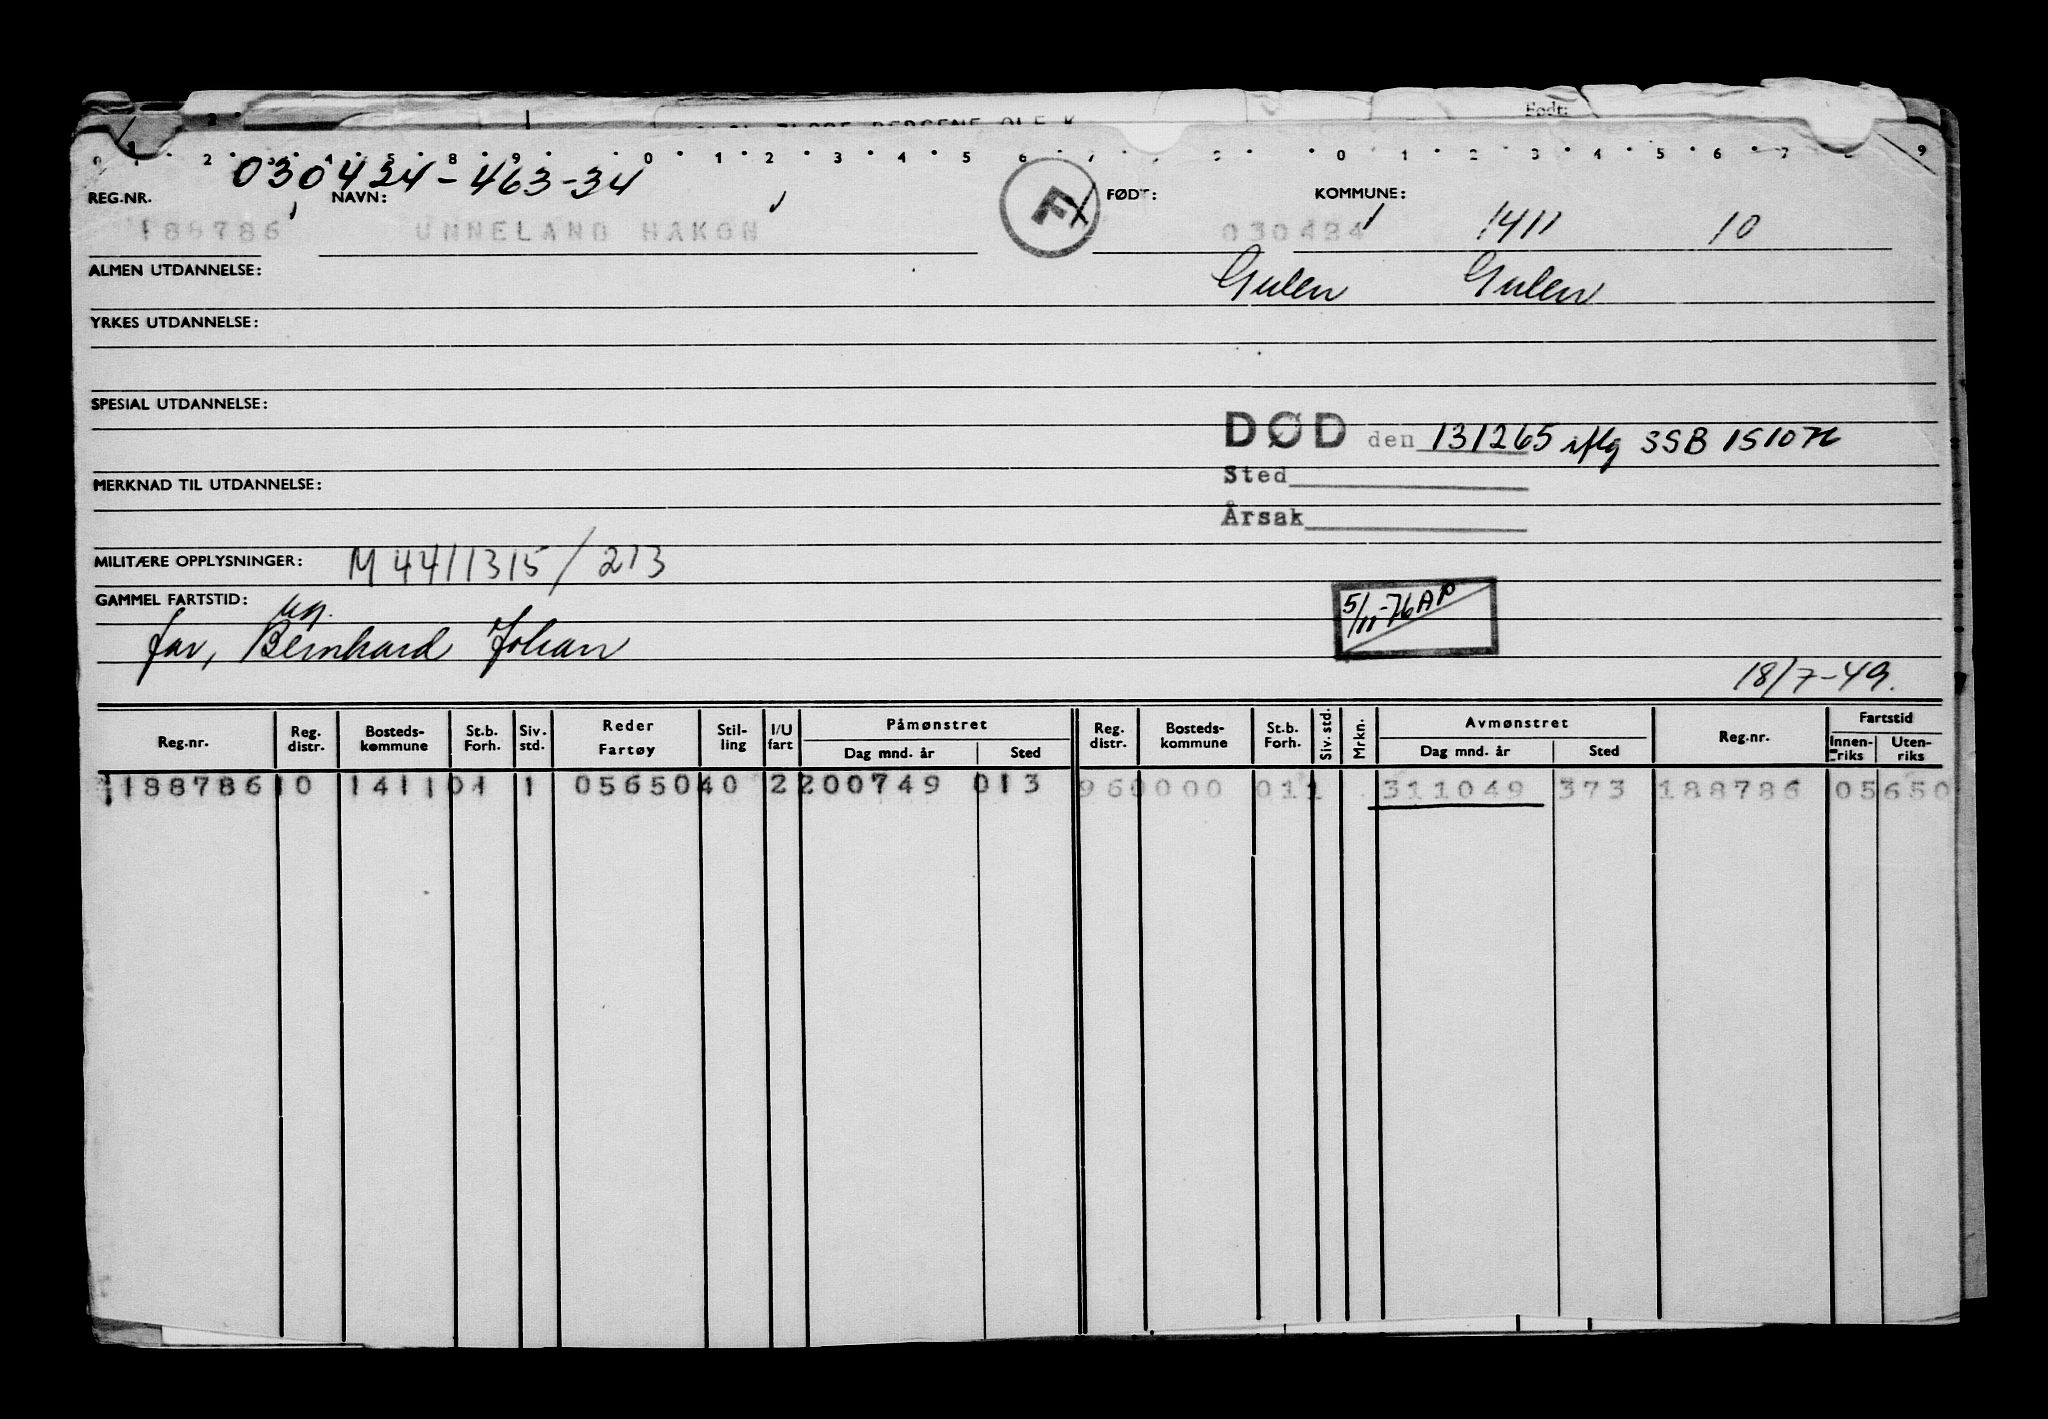 Født:
030424-463-34
REG.NR. NAVN: F FØDT: KOMMUNE:
188786 UNNELAND HAKON 030424 1411 10
ALMEN UTDANNELSE: Gulen Gulen
YRKES UTDANNELSE:
SPESIAL UTDANNELSE:
DØD den 131265 iflg SSB 151076
Sted
MERKNAD TIL UTDANNELSE:
Årsak
MILITÆRE OPPLYSNINGER: M 4411315/213
GAMMEL FARTSTID:
5/11-76 AP
far, Bernhard Johan
18/7-49.
Reg.nr. Reg. distr. Bosteds-kommune St.b. Forh. Siv. std. Reder Fartøy Stil-ling I/U fart Påmønstret Dag mnd. år Sted Reg. distr. Bosteds-kommune St.b. Forh. Siv. std. Mrkn. Avmønstret Dag mnd. år Sted Reg.nr. Fartstid Innen-riks Uten-riks
188786 10 1411 01 1 05650 40 2 200749 013 96 0000 01 1 311049 373 188786 05650